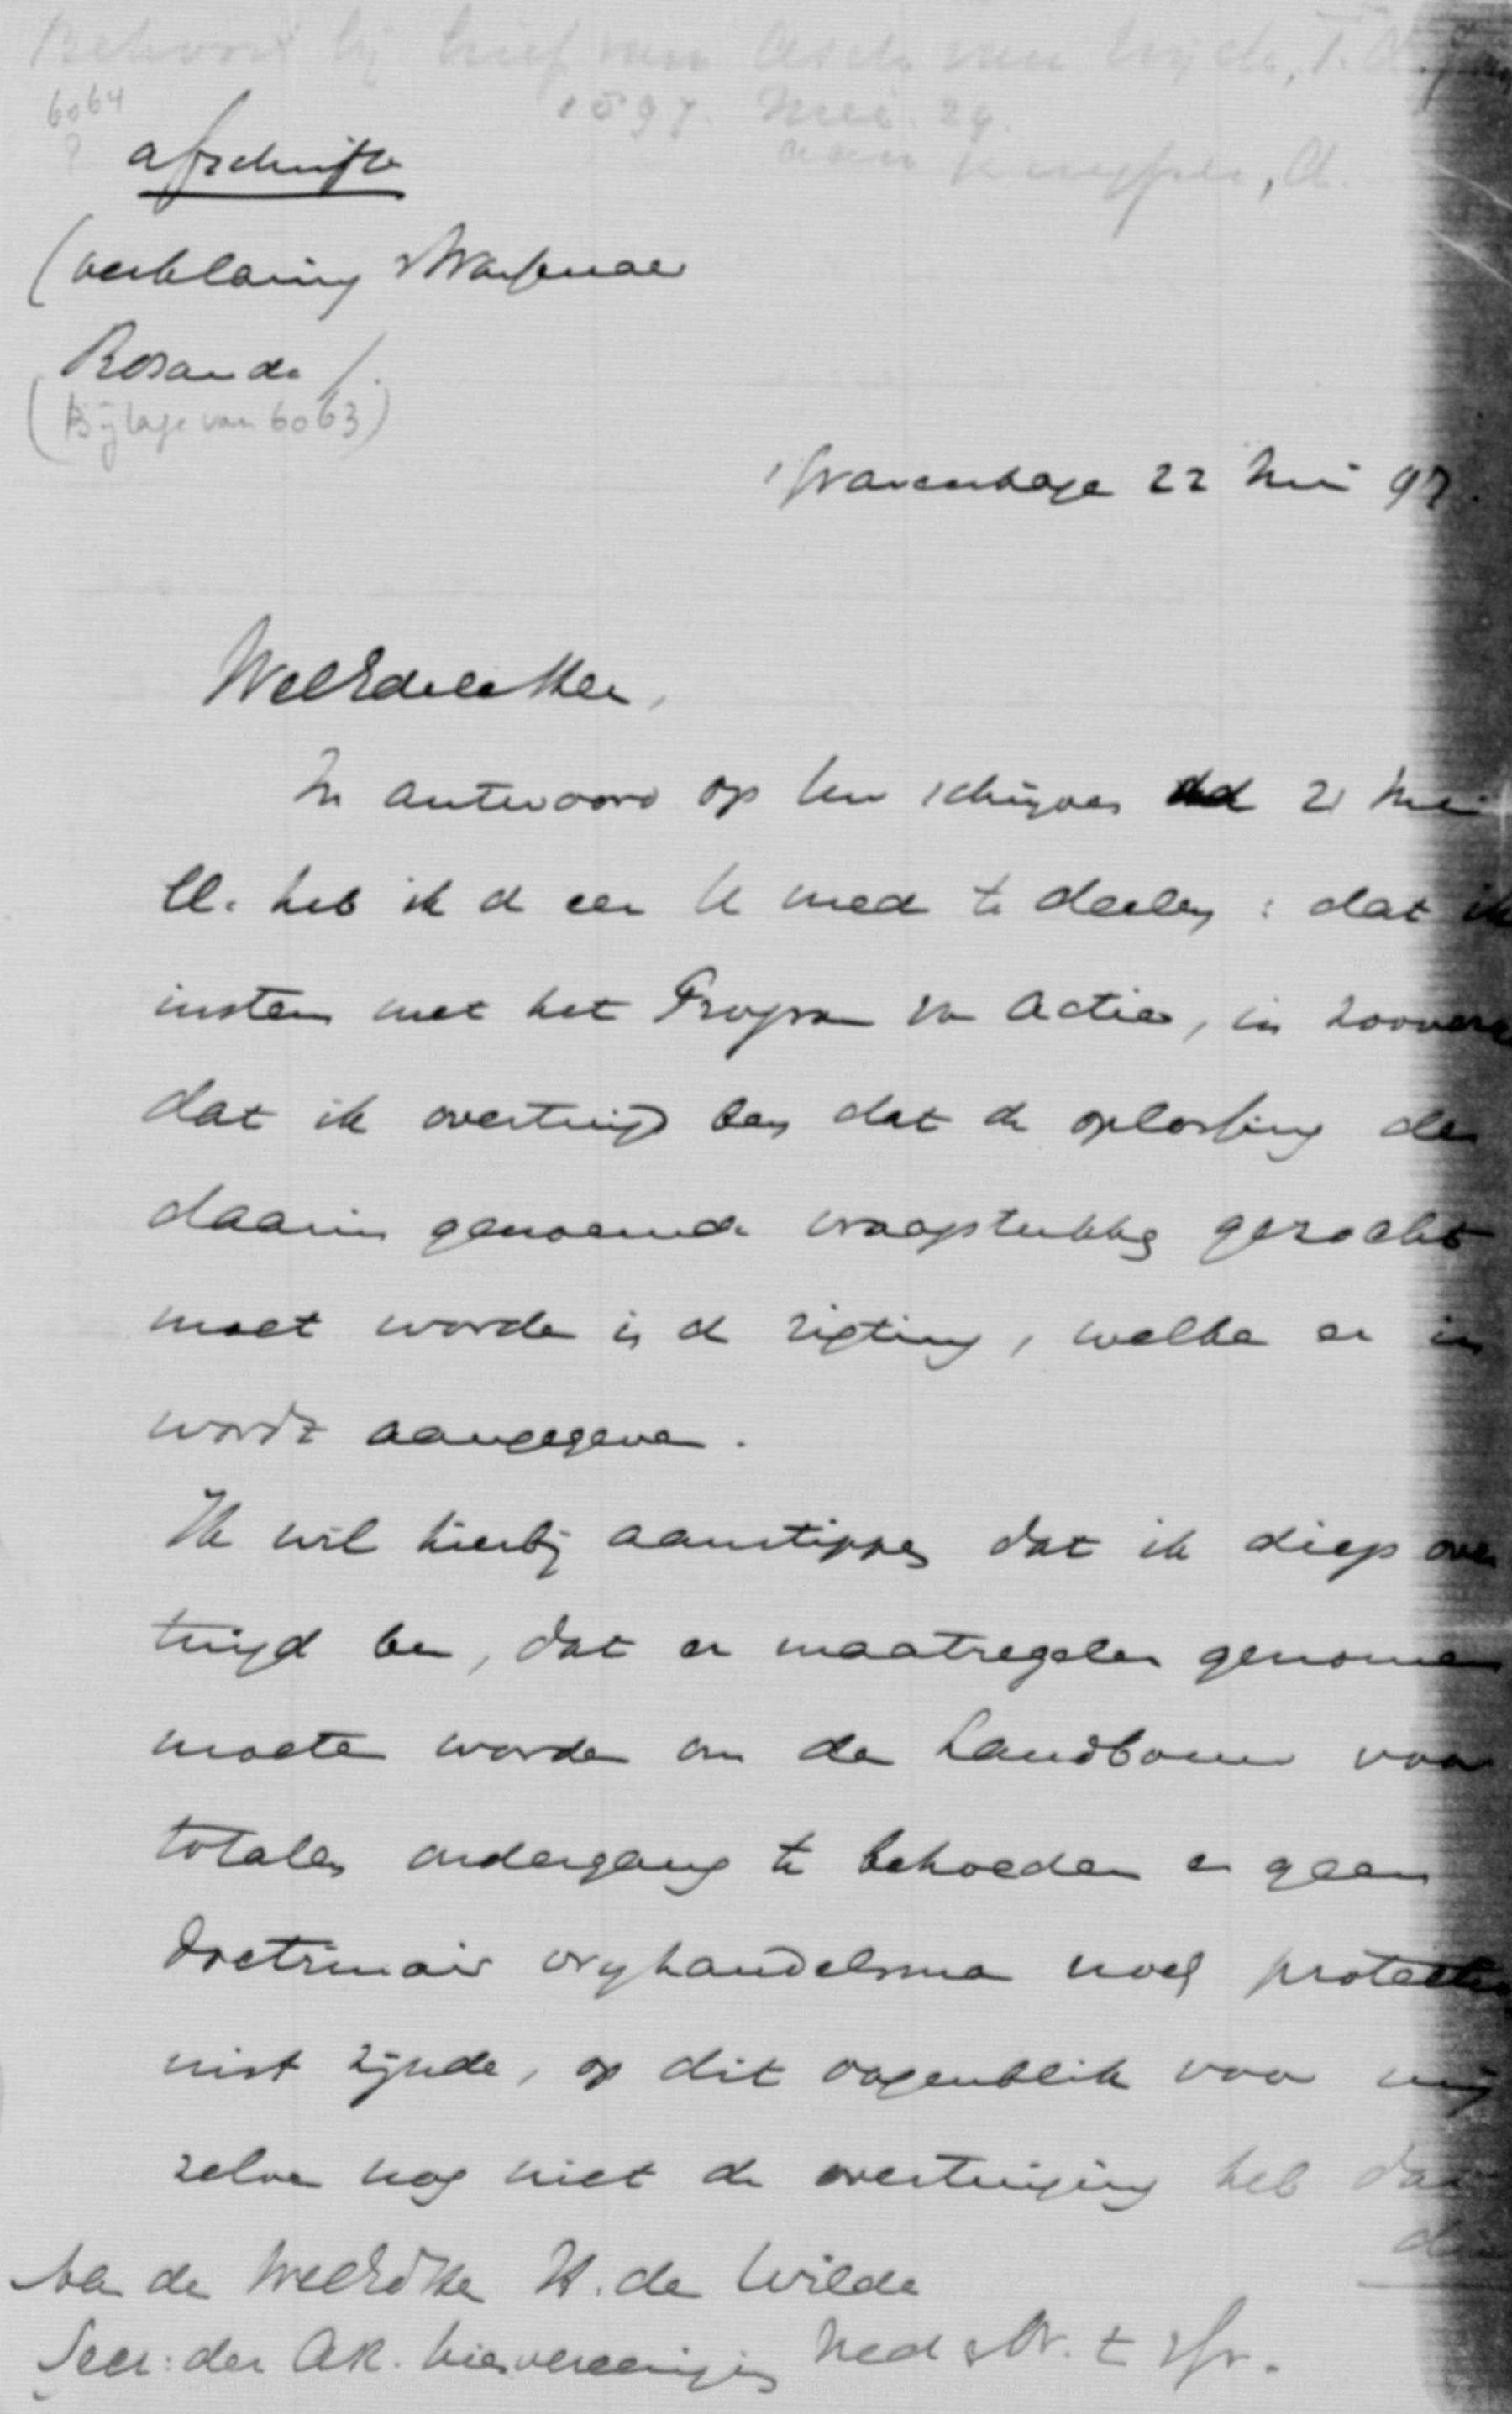 Behoort bij brief van Asch van Wijck, T. A. J. van
1897. Mei. 24.
aan Kuyper, A.
6064
?
afschrift
(verklaring v Wassenaer
Rosande).
(Bijlage van 6063)
's Gravenhage 22 Mei 97.
WelEdele Heer,
In antwoord op Uw schrijven dd 21 Mei
ll. heb ik d eer U mede te deelen : dat ik
instem met het Program van Actie, in zooverre
dat ik overtuigd ben dat de oplossing der
daarin genoemde vraagstukken gezocht
moet worden in d rigting, welke er in
wordt aangegeven.
Ik wil hierbij aanstippen dat ik diep over
tuigd ben, dat er maatregelen genomen
moeten worden om den Landbouw voor
totalen ondergang te behoeden en geen
doctrinair vryhandelsman noch protectio
nist zijnde, op dit oogenblik voor mij
zelven nog niet de overtuiging heb dat
die
Aan de WelEdHr H. de Wilde
Secr: der AR. Kiesvereeniging Ned. & Or. t sGr.